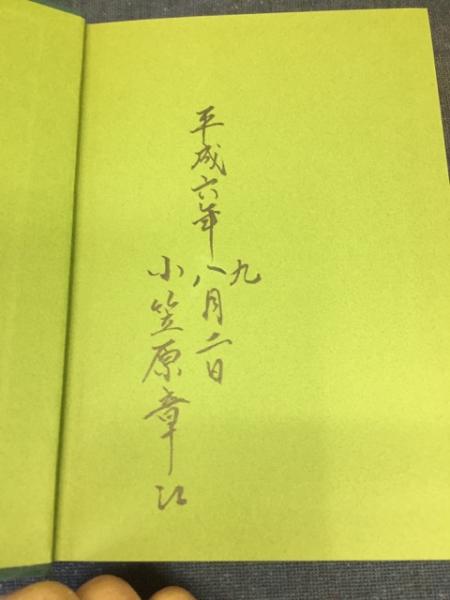 平成六年八月二日
九
小笠原章江